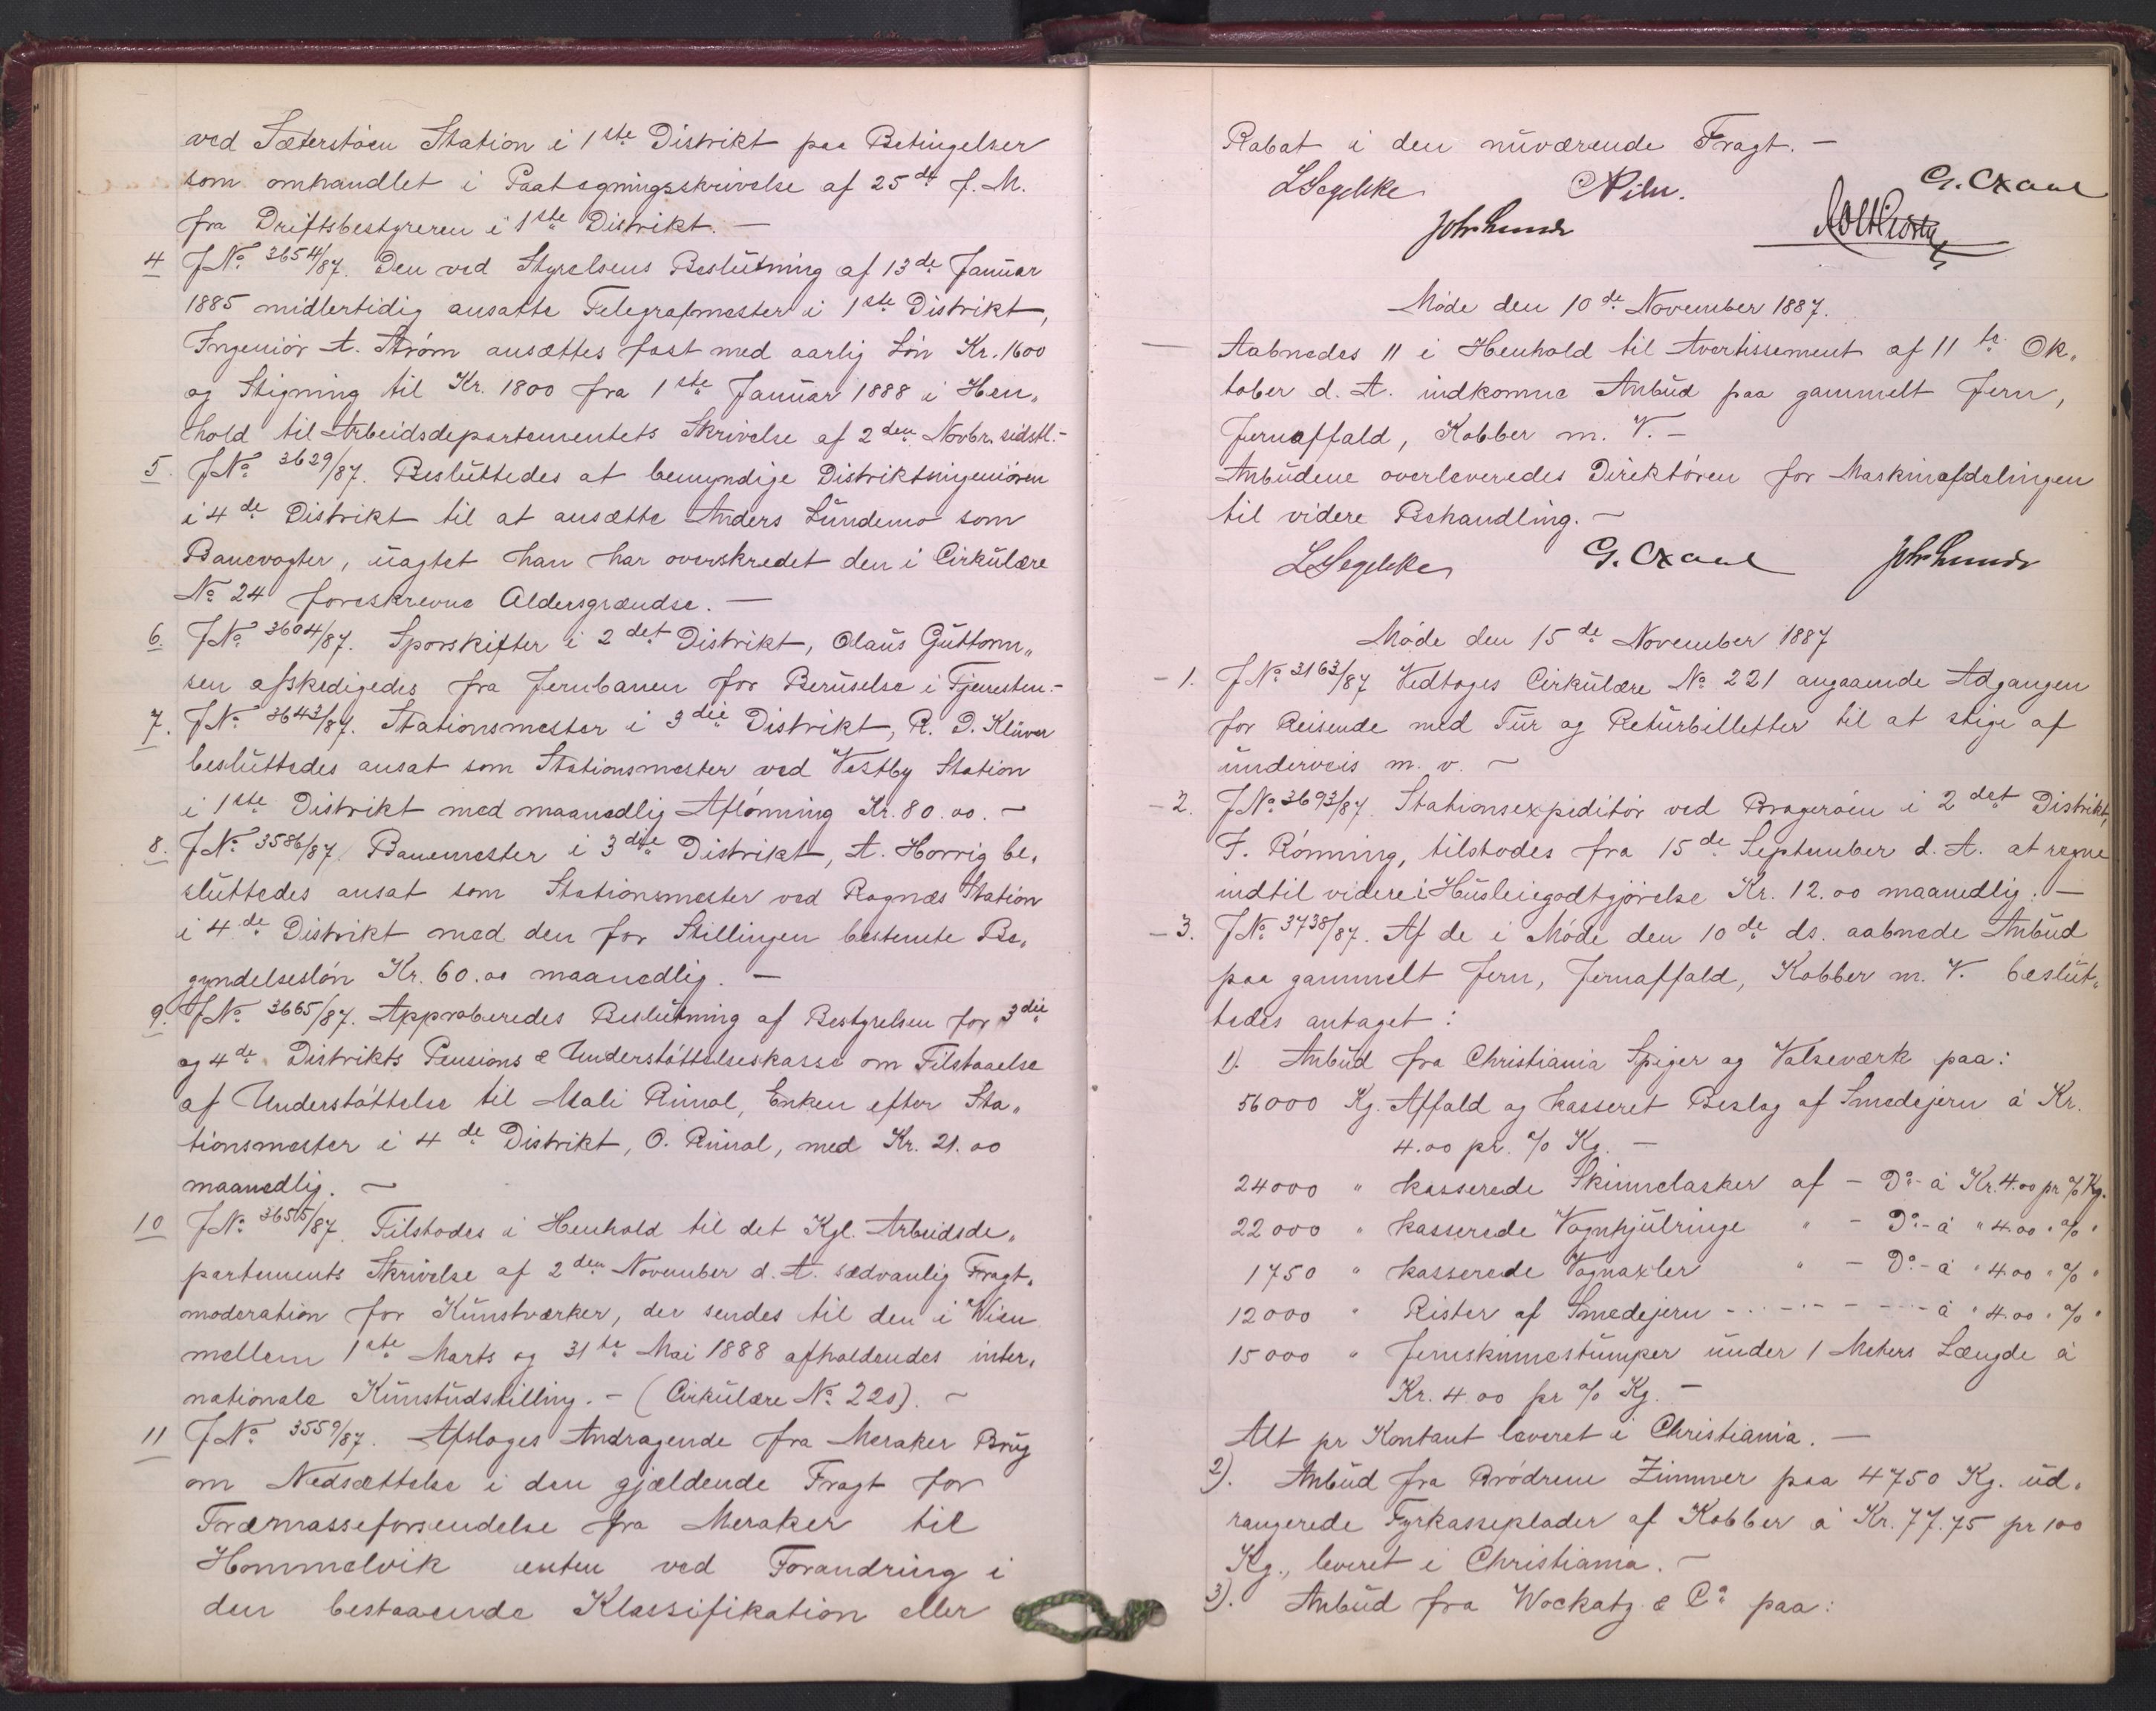 ved Sæterstøen Station i 1ste Distrikt paa Betingelser
som omhandlet i Paategningsskrivelse af 25de f. M.
fra Driftsbestyreren i 1ste Distrikt. —
4 J№ 3654/87. Den ved Styrelsens Beslutning af 13de Januar
1885 midlertidig ansatte Telegrafmester i 1ste Distrikt,
Ingeniør A. Strøm ansættes fast med aarlig Løn Kr. 1600
og Stigning til Kr. 1800 fra 1ste Januar 1888 i Hen„
hold til Arbeidsdepartementets Skrivelse af 2den Novbr. sidstl. -
5. J№ 3629/87. Besluttedes at bemyndige Distriktsingeniøren
i 4de Distrikt til at ansætte Anders Lundemo som
Banevogter, uagtet han har overskredet den i Cirkulære
№ 24 foreskrevne Aldersgrændse. —
6. J№ 3604/87. Sporskifter i 2det Distrikt, Olaus Guttorm„
sen afskedigedes fra Jernbanen for Beruselse i Tjenesten. -
7. J№ 3643/87. Stationsmester i 3die Distrikt, R. D. Klüver
besluttedes ansat som Stationsmester ved Vestby Station
i 1ste Distrikt med maanedlig Aflønning Kr. 80.00. ~
8. J№ 3586/87. Banemester i 3die Distrikt, A. Horrig be„
sluttedes ansat som Stationsmester ved Rognæs Station
i 4de Distrikt med den for Stillingen bestemte Be„
gyndelsesløn Kr. 60.00 maanedlig. —
9. J№ 3665/87. Approberedes Beslutning af Bestyrelsen for 3die
og 4de Distrikts Pensions & Understøttelseskasse om Tilstaaelse
af Understøttelse til Mali Rimol, Enken efter Sta„
tionsmester i 4de Distrikt, O. Rimol, med Kr. 21.00
maanedlig. ~
10 J№ 3655/87. Tilstodes i Henhold til det Kgl. Arbeidsde„
partements Skrivelse af 2den November d. A. sædvanlig Fragt„
moderation for Kunstværker, der sendes til den i Wien
mellem 1ste Marts og 31te Mai 1888 afholdendes inter„
nationale Kunstudstilling. - (Cirkulære № 220). ~
11 J№ 3559/87. Afsloges Andragende fra Meraker Brug
om Nedsættelse i den gjældende Fragt for
Træmasseforsendelse fra Meraker til
Hommelvik enten ved Forandring i
den bestaaende Klassifikation eller
Rabat i den nuværende Fragt. —
LSegelcke Pihl. G. Oxaal
Joh. Lund
Møde den 10de November 1887.
— Aabnedes 11 i Henhold til Avertissement af 11te Ok„
tober d. A. indkomne Anbud paa gammelt Jern,
Jernaffald, Kobber m. V. —
Anbudene overleveredes Direktøren for Maskinafdelingen
til videre Behandling. ~
LSegelcke G. Oxaal Joh. Lund
Møde den 15de November 1887
- 1. J№ 3163/87 Vedtoges Cirkulære № 221 angaaende Adgangen
for Reisende med Tur og Returbilletter til at stige af
underveis m. v. ~
- 2. J№ 3693/87. Stationsexpeditør ved Bragerøen i 2det Distrikt,
F. Rønning, tilstodes fra 15de September d. A. at regne
indtil videre i Husleiegodtgjørelse Kr. 12.00 maanedlig. —
- 3. J№ 3738/87. Af de i Møde den 10de ds. aabnede Anbud
paa gammelt Jern, Jernaffald, Kobber m. V. beslut„
tedes antaget:
1). Anbud fra Christiania Spiger og Valseværk paa:
56000 Kg. Affald og kasseret Beslag af Smedejern á Kr.
4.00 pr. % Kg. —
24000 " kasserede Skinnelasker af - Do - á Kr. 4.00 pr % Kg.
22000 " kasserede Vognhjulringe " - Do - á " 4.00 " % "
1750 " kasserede Vognaxler " - Do - á " 4.00 " % "
12000 " Rister af Smedejern - - - - - - á " 4.00 " % "
15000 " Jernskinnestumper under 1 Meters Længde á
Kr. 4.00 pr % Kg. —
Alt pr Kontant leveret i Christiania. —
2). Anbud fra Brødrene Zimmer paa 4750 Kg. ud„
rangerede Fyrkasseplader af Kobber á Kr. 77.75 pr 100
Kg., leveret i Christiania. ~
3). Anbud fra Wockatz & Co paa: